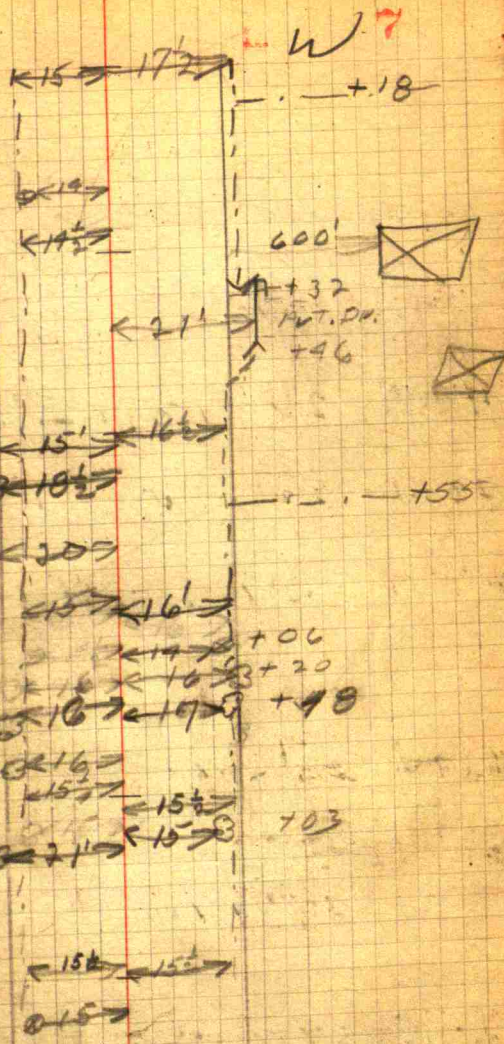 W 7
15 17½
+18
14
14½
600'
+32
21' PVT. DR.
+46
15' 16½
18½
+55
20
15 16'
+06
14
16 16 +20
16 17 +48
16
15½
15½
15 +03
21'
15½ 15½
15